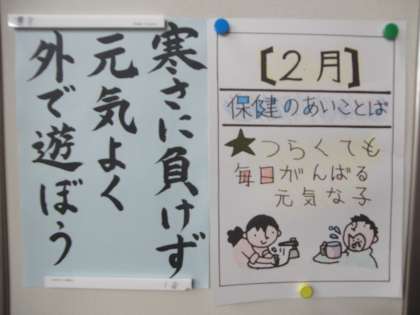 寒さに負けず
元気よく
外で遊ぼう
【2月】
保健のあいことば
★つらくても
毎日がんばる
元気な子